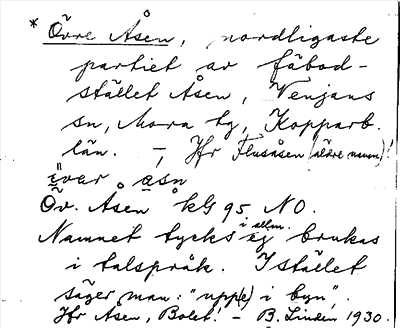 * Övre Åsen, nordligaste
partiet av fäbod-
stället Åsen, Venjans
sn, Mora tg, Kopparb.
län. –, Jfr Flusåsen (äldre namn)!
övar åsn
Öv. Åsen kG 95 NO.
Namnet tycks i allm. ej brukas
i talspråk. I stället
säger man: "upp(e) i byn".
Jfr Åsen, Bolet! – B. Linden 1930.